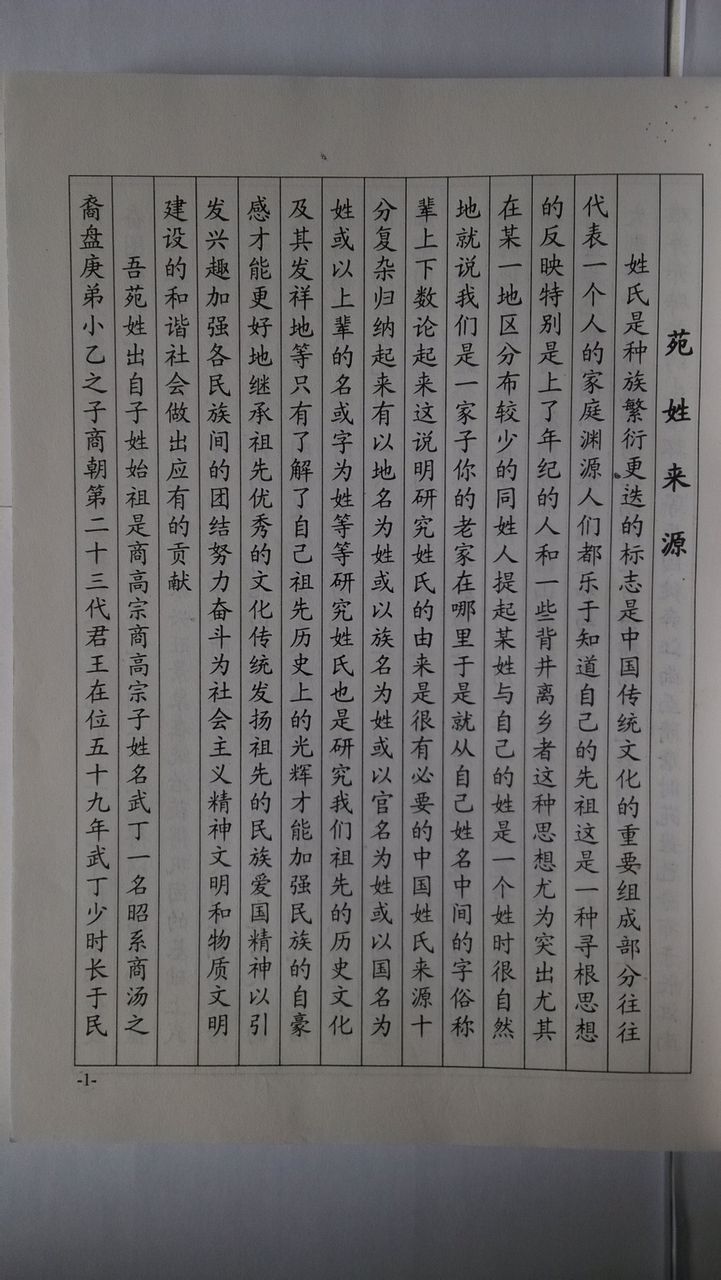 苑姓来源
姓氏是种族繁衍更迭的标志是中国传统文化的重要组成部分往往
代表一个人的家庭渊源人们都乐于知道自己的先祖这是一种寻根思想
的反映特别是上了年纪的人和一些背井离乡者这种思想尤为突出尤其
在某一地区分布较少的同姓人提起某姓与自己的姓是一个姓时很自然
地就说我们是一家子你的老家在哪里于是就从自己姓名中间的字俗称
辈上下数论起来这说明研究姓氏的由来是很有必要的中国姓氏来源十
分复杂归纳起来有以地名为姓或以族名为姓或以官名为姓或以国名为
姓或以上辈的名或字为姓等等研究姓氏也是研究我们祖先的历史文化
及其发祥地等只有了解了自己祖先历史上的光辉才能加强民族的自豪
感才能更好地继承祖先优秀的文化传统发扬祖先的民族爱国精神以引
发兴趣加强各民族间的团结努力奋斗为社会主义精神文明和物质文明
建设的和谐社会做出应有的贡献
吾苑姓出自子姓始祖是商高宗商高宗子姓名武丁一名昭系商汤之
裔盘庚弟小乙之子商朝第二十三代君王在位五十九年武丁少时长于民
-1-